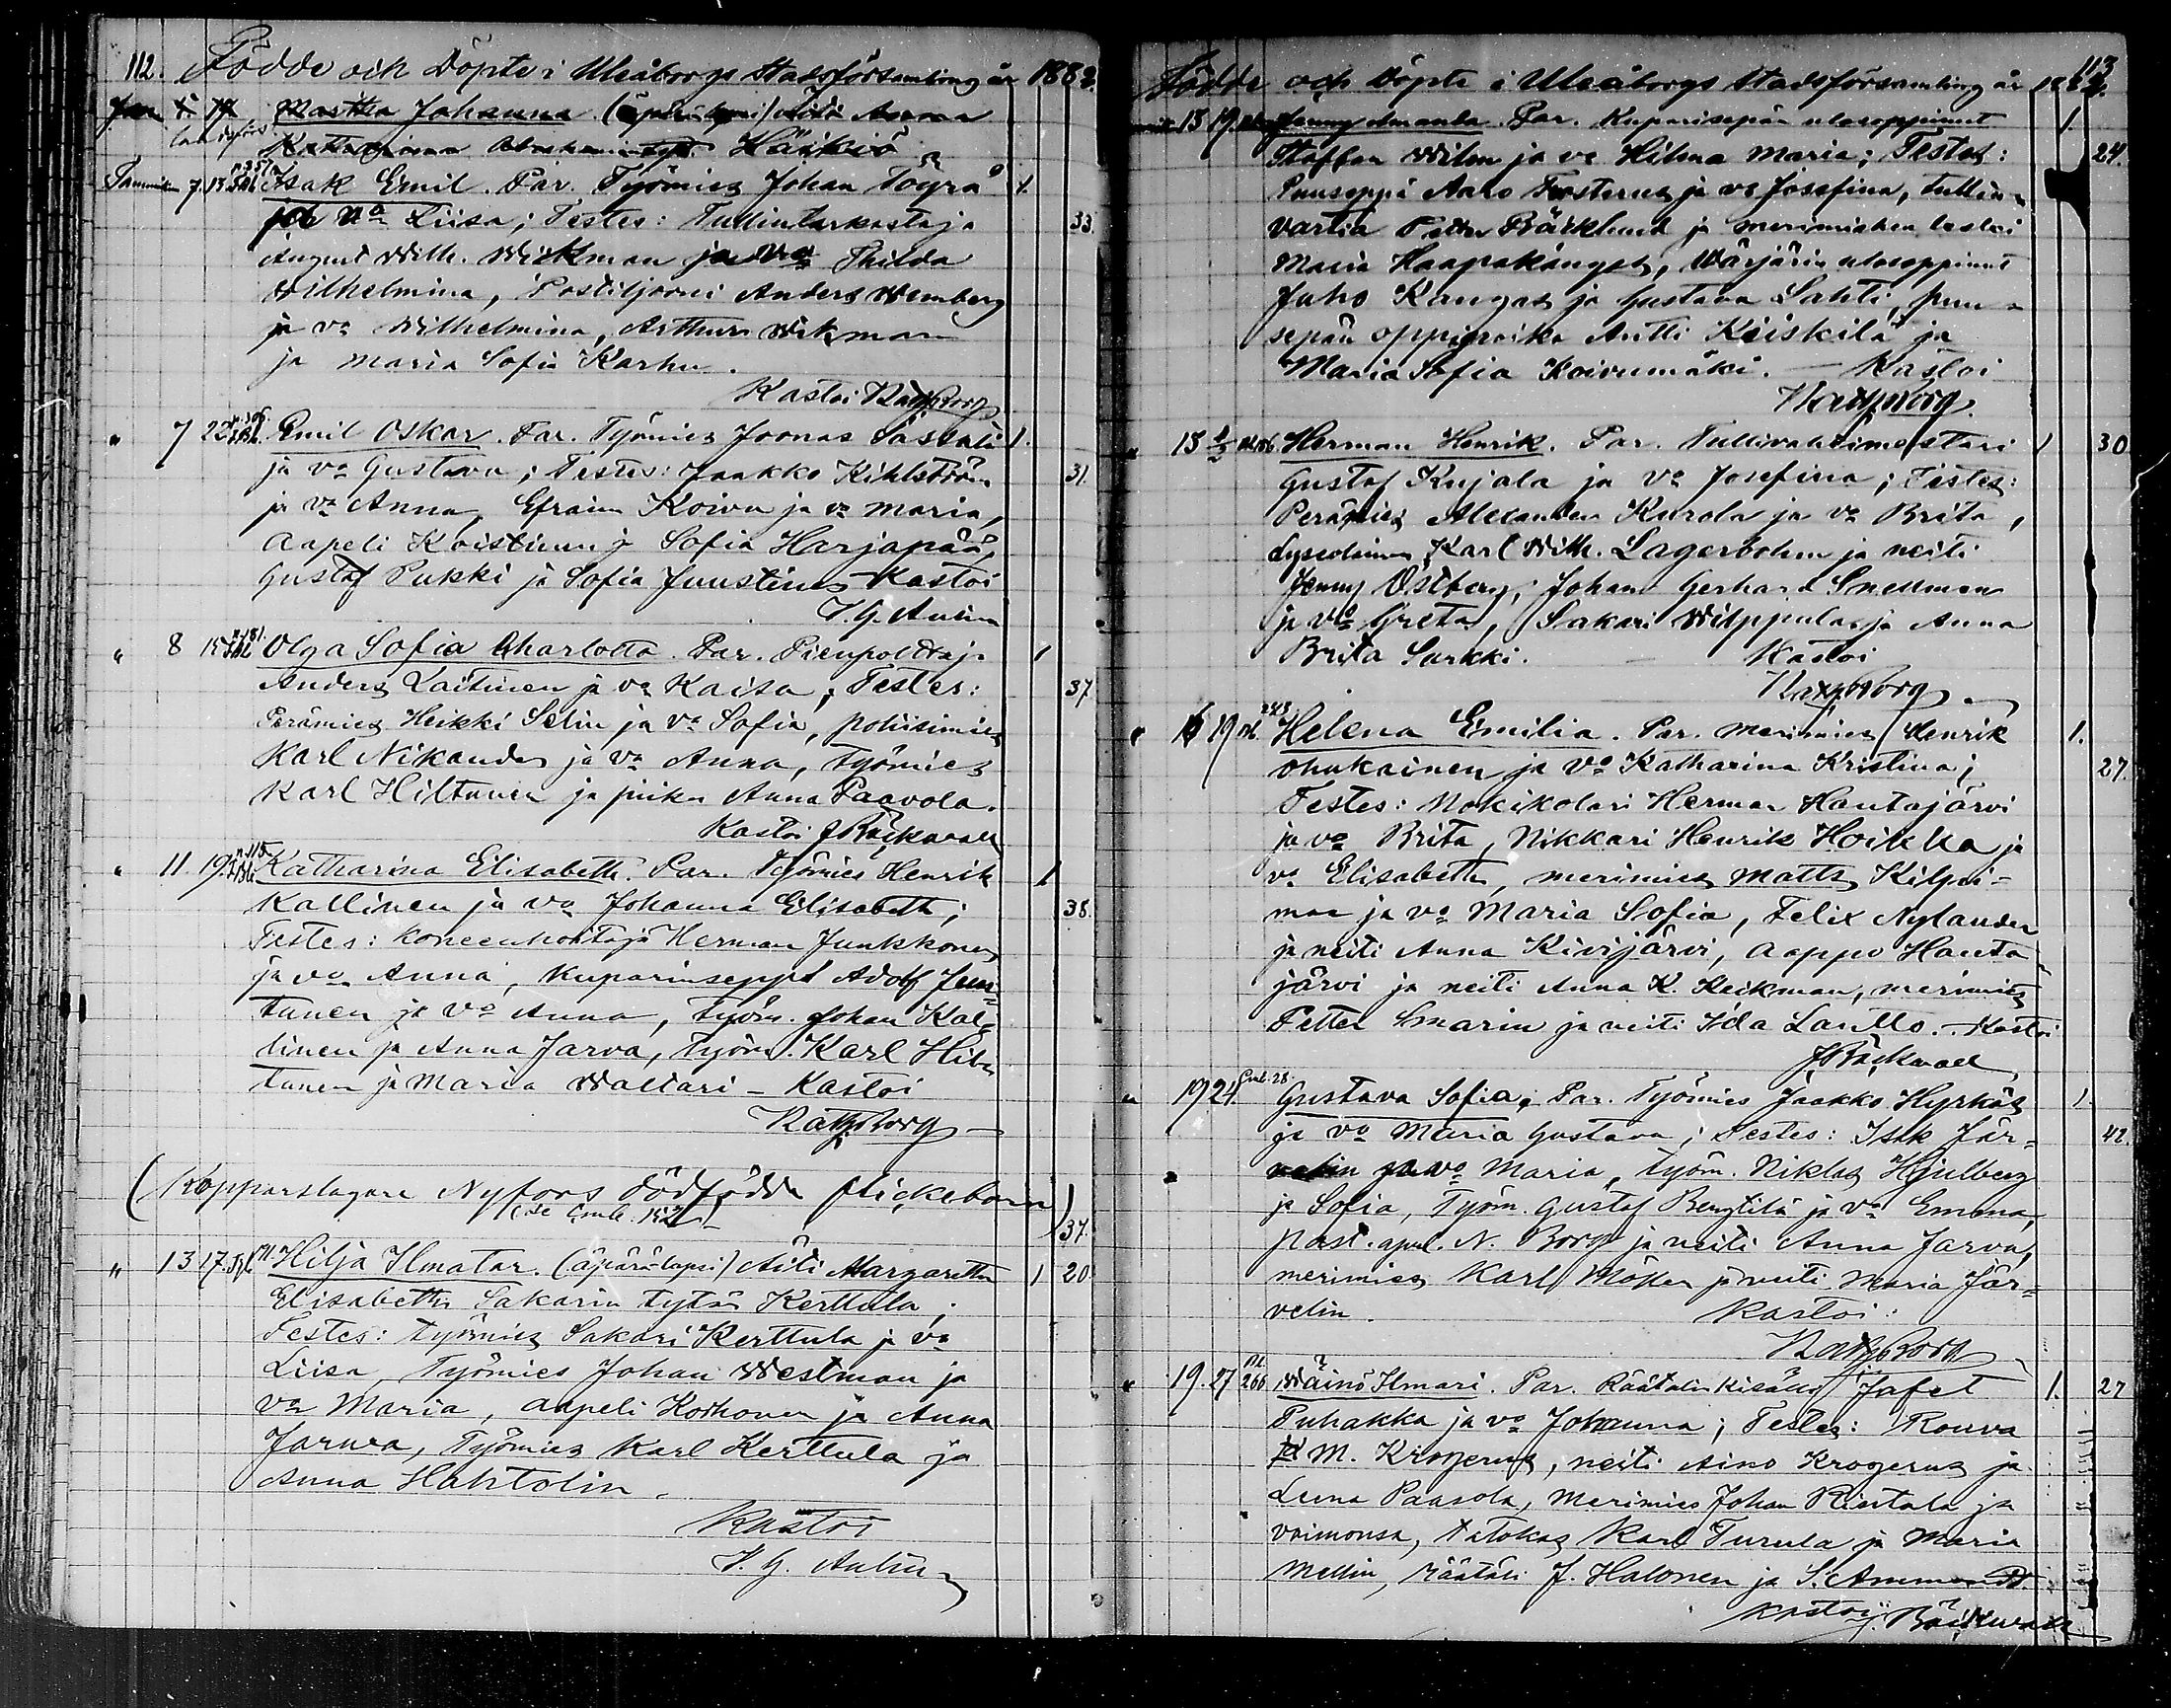 112. Födde och Döpte i Uleåborgs Stadsförsamling år 1882.
Martta Johanna (äpärä lapsi) Äiti Anna
Häikiö
Tammik. 7. 15. Isak Emil. Par. Työmies Johan Töyrä 1.
ja va Liisa; Testes: Tullintarkastaja 33.
August Wilh. Wickman ja va Thilda
Wilhelmina, Postiljooni Anders Wemberg
ja va Wilhelmina, Arthur Wikman
ja Maria Sofia Karhu.
Kastoi
" 7 22 Emil Oskar. Par. Työmies Joonas 1.
ja va Gustava; Testes: Jaakko Kihlström 31.
ja va Anna, Efraim Koivu ja va Maria,
Aapeli Koistinen ja Sofia Harjapää,
Gustaf Pukki ja Sofia Juustinus Kastoi
" 8 15 n. 181. Olga Sofia Charlotta. Par. 1
Anders Laitinen ja va Kaisa; Testes: 37.
Perämies Heikki Selin ja va Sofia, poliisimies
Karl Nikander ja va Anna, Työmies
Karl Hiltunen ja piika Anna Paavola.
Kastoi J Bäckwall
" 11. 19. n. 115 Katharina Elisabeth. Par. Työmies Henrik 1
Kallinen ja va Johanna Elisabeth; 38.
Testes: Koneenhoitaja Herman Junkkonen
ja va Anna, Kuparinseppä Adolf Juu-
tunen ja va Anna, Työm. Johan Kal-
linen ja Anna Jarva, Työm. Karl Hil-
tunen ja Maria Waltari - Kastoi
(Kopparslagare Nyfors dödfödda flickebarn)
(se Cmb. 152) 37.
" 13 17. Hilja Ilmatar. (äpärä-lapsi) Äiti Margaretha 1 20
Elisabeth Sakarin tytär Kerttula;
Testes: Työmies Sakari Kerttula ja va
Liisa, Työmies Johan Westman ja
va Maria, Aapeli Korhonen ja Anna
Jarva, Työmies Karl Kerttula ja
Anna Hahtolin.
Kastoi
113
Födde och Döpte i Uleåborgs Stadsförsamling år 1882.
13 19. Jenny Amanda. Par. Kuparisepän ulosoppinut 1.
Staffan Wilen ja va Hilma Maria; Testes: 24.
Puuseppä Aaro Fosterus ja va Josefina, tullin-
vartia Petter Bäcklund ja merimiehen leski
Maria Haapakangas, Wärjärin ulosoppinut
Juho Kangas ja Gustava Lahti, puu-
sepän oppipoika Antti Kiiskilä ja
Maria Sofia Koivumäki. — Kastoi
" 13 Herman Henrik. Par. Tullivahtimestari 1 30
Gustaf Kujala ja va Josefina; Testes:
Perämies Alexander Kurola ja va Brita,
Lyseolainen Karl Wilh. Lagerbohm ja neiti
Jenny Östberg, Johan Gerhard Snellman
ja va Greta, Sakari Wilppula ja Anna
Brita Sarkki. Kastoi
" 16 19 Helena Emilia. Par. Merimies Henrik 1.
Ohukainen ja va Katharina Kristina; 27.
Testes: Nokikolari Herman Hautajärvi
ja va Brita, Nikkari Henrik Hoikka ja
va Elisabeth, merimies Matts Kilpi-
maa ja va Maria Sofia, Felix Nylander
ja neiti Anna Kivijärvi, Aappo Hauta-
järvi ja neiti Anna K. Keckman, merimies
Petter Smarin ja neiti Ida Laullo. - Kastoi
J Bäckwall
" 19 24. Cmb. 28. Gustava Sofia. Par. Työmies Jaakko Hyrkäs 1.
ja va Maria Gustava; Testes: Isak Jär- 42.
velin ja va Maria, Työm. Niklas Hjulberg
ja Sofia, Työm. Gustaf Bengtilä ja va Emma,
past. apul. N. Borg ja neiti Anna Jarva,
merimies Karl Möller ja neiti Maria Jär-
velin. Kastoi:
" 19. 27 266 Wäinö Ilmari. Par. Räätalin kisälli Jafet 1. 27
Puhakka ja va Johanna; Testes: Rouva
M. Krogerus, neiti Aino Krogerus ja
Leena Paasola, merimies Johan Riertala ja
vaimonsa, talokas Karl Turula ja Maria
Mellin, räätäli J. Halonen ja S. Ammondt
Kastoi J. Bäckwall